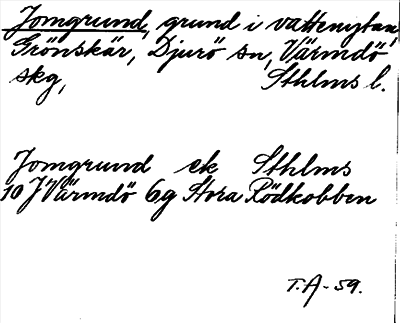 Jomgrund, grund i vattenytan,
Grönskär, Djurö sn, Värmdö
skg, Sthlms l.
Jomgrund ek Sthlms
10 J Värmdö 6g Stora Rödkobben
T.A-59.